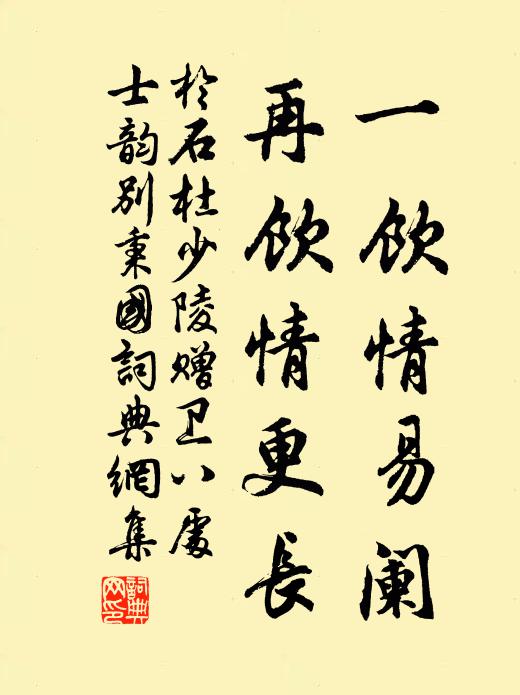 一飲情易阑
再飲情更長
於石杜少陵赠卫八處
士韵别秉國詞典網集
詞典网印